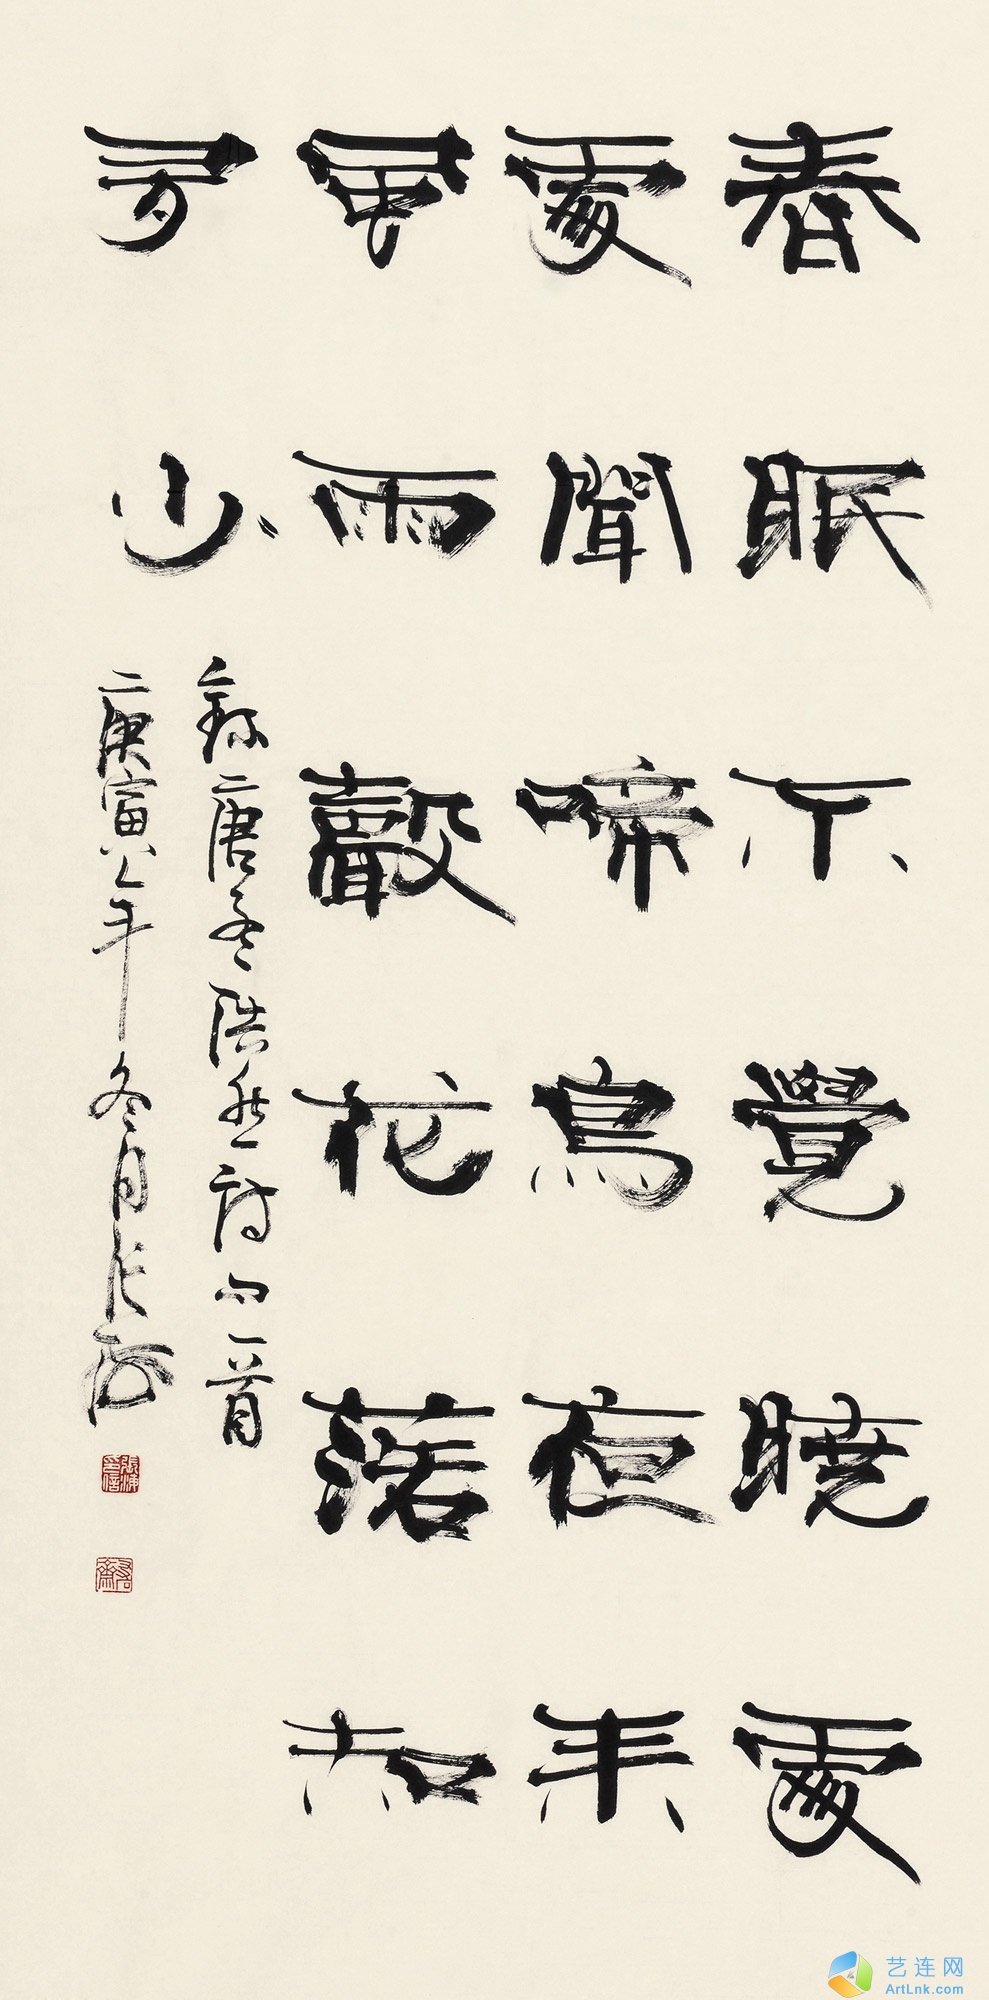 春眠不覺曉處
處聞啼鳥夜來
風雨聲花落知
多少
錄唐孟浩然詩一首
庚寅年冬月張海
艺连网
ArtLnk.com